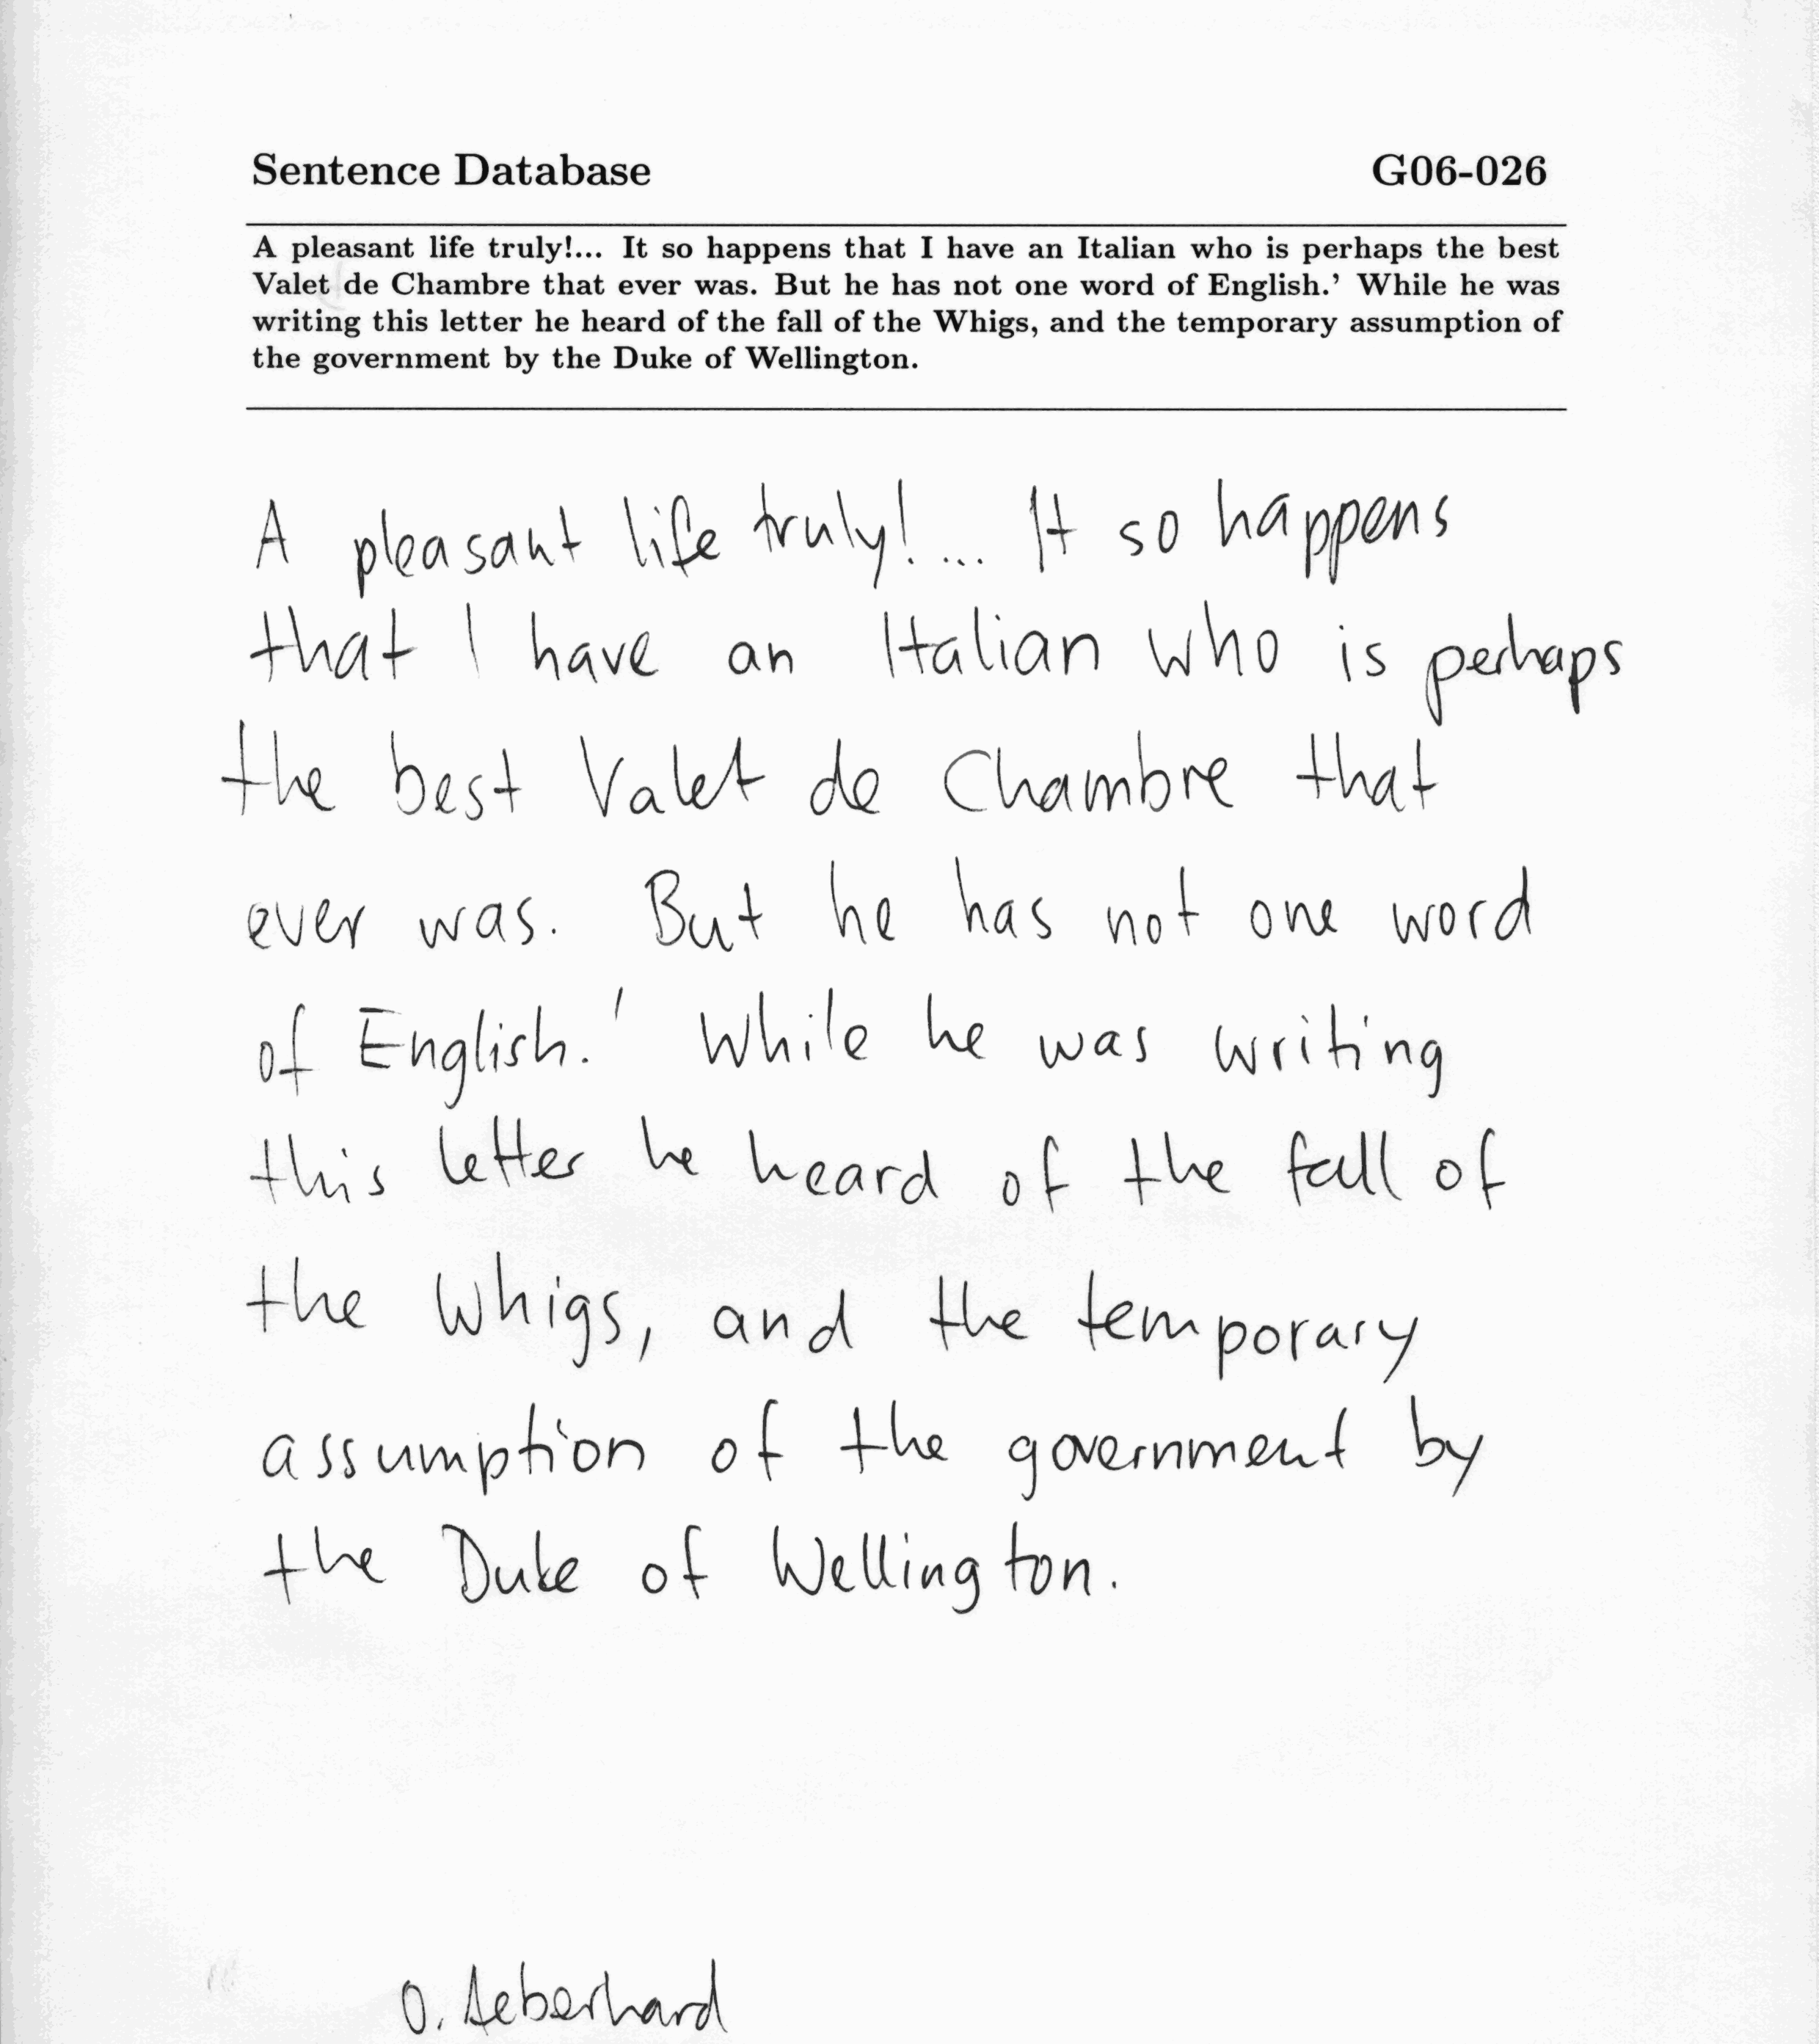 Sentence Database G06-026
A pleasant life truly!... It so happens that I have an Italian who is perhaps the best
Valet de Chambre that ever was. But he has not one word of English.' While he was
writing this letter he heard of the fall of the Whigs, and the temporary assumption of
the government by the Duke of Wellington.
A pleasant life truly!... It so happens
that I have an Italian who is perhaps
the best Valet de Chambre that
ever was. But he has not one word
of English.' While he was writing
this letter he heard of the fall of
the Whigs, and the temporary
assumption of the government by
the Duke of Wellington.
O. Aeberhard